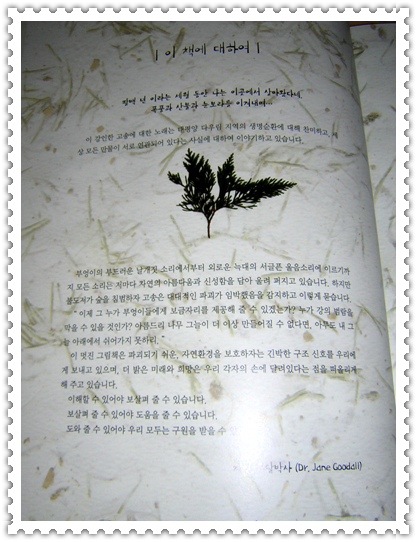 | 이 책에 대하여 |
몇백 년 이라는 세월 동안 나는 이곳에서 살아왔다네.
폭풍과 산불과 눈보라를 이겨내며...
이 강인한 고송에 대한 노래는 태평양 다우림 지역의 생명순환에 대해 찬미하고,
상 모든 만물이 서로 연관되어 있다는 사실에 대하여 이야기하고 있습니다.
부엉이의 부드러운 날개짓 소리에서부터 외로운 늑대의 서글픈 울음소리에 이르기까
지 모든 소리는 저마다 자연의 아름다움과 신성함을 담아 울려 퍼지고 있습니다. 하지만
불도저가 숲을 침범하자 고송은 대대적인 파괴가 임박했음을 감지하고 이렇게 묻습니다.
" 이제 그 누가 부엉이들에게 보금자리를 제공해 줄 수 있겠는가? 누가 강의 범람을
막을 수 있을 것인가? 아름드리 나무 그늘이 더 이상 만들어질 수 없다면, 아무도 내 그
늘 아래에서 쉬어가지 못하리. "
이 멋진 그림책은 파괴되기 쉬운, 자연환경을 보호하자는 긴박한 구조 신호를 우리에
게 보내고 있으며, 더 밝은 미래와 희망은 우리 각자의 손에 달려있다는 점을 떠올리게
해 주고 있습니다.
이해할 수 있어야 보살펴 줄 수 있습니다.
보살펴 줄 수 있어야 도움을 줄 수 있습니다.
도와 줄 수 있어야 우리 모두는 구원을 받을 수
박사 (Dr. Jane Goodall)